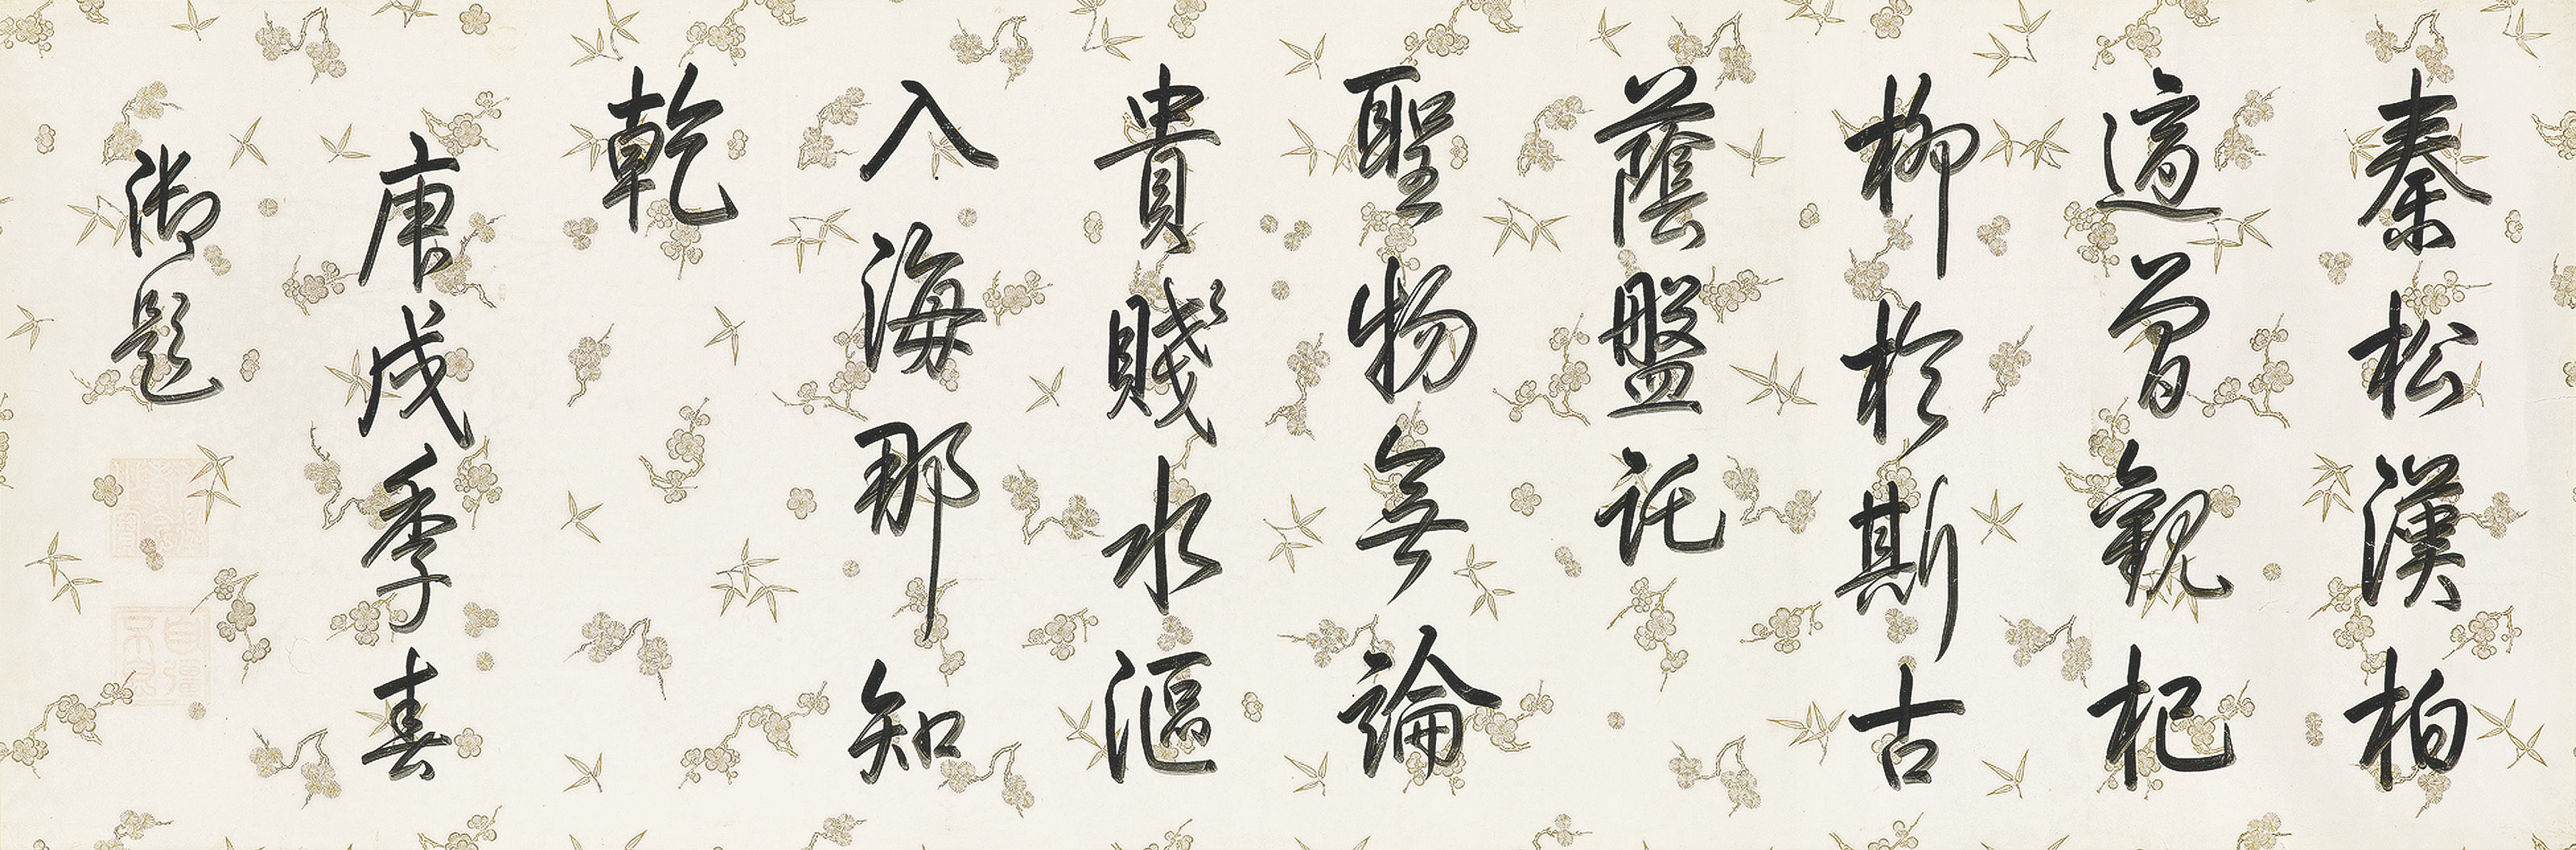 秦松漢柏
適曾觀杞
柳於斯古
蔭盤託
聖物無論
貴賤水漚
入海那知
乾
庚戌季春
御題
自彊不息